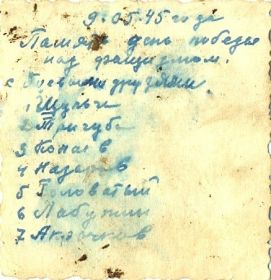 9.05.45 года
Память день победы
над фашизмом.
с боевыми друзьями.
1 Шульги
2 Тригуб
3 Конаев
4 Назаров
5 Головатый
6 Лабузин
7